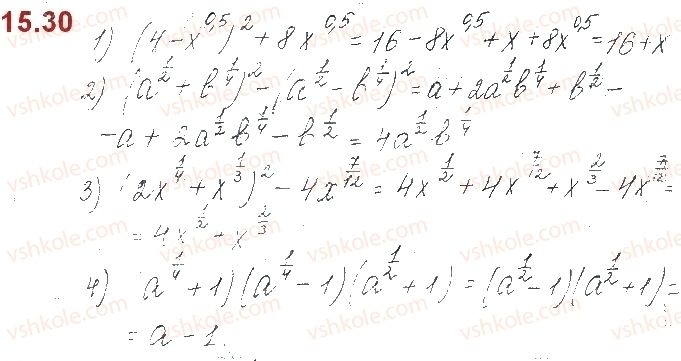 15.30
1) (4 - x^0,5)^2 + 8x^0,5 = 16 - 8x^0,5 + x + 8x^0,5 = 16 + x
2) (a^1/2 + b^1/4)^2 - (a^1/2 - b^1/4)^2 = a + 2a^1/2 b^1/4 + b^1/2 -
- a + 2a^1/2 b^1/4 - b^1/2 = 4a^1/2 b^1/4
3) (2x^1/4 + x^1/3)^2 - 4x^7/12 = 4x^1/2 + 4x^7/12 + x^2/3 - 4x^7/12 =
= 4x^1/2 + x^2/3
4) a^1/4 + 1)(a^1/4 - 1)(a^1/2 + 1) = (a^1/2 - 1)(a^1/2 + 1) =
= a - 1.